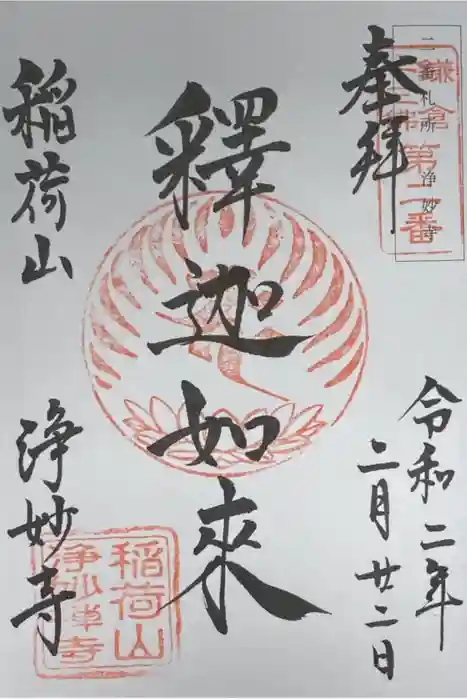 二番札所 浄妙寺
鎌倉
十三佛
第二番
奉拝
令和二年
二月廿二日
釋迦如來
稲荷山
浄妙寺
稲荷山
浄妙禅寺